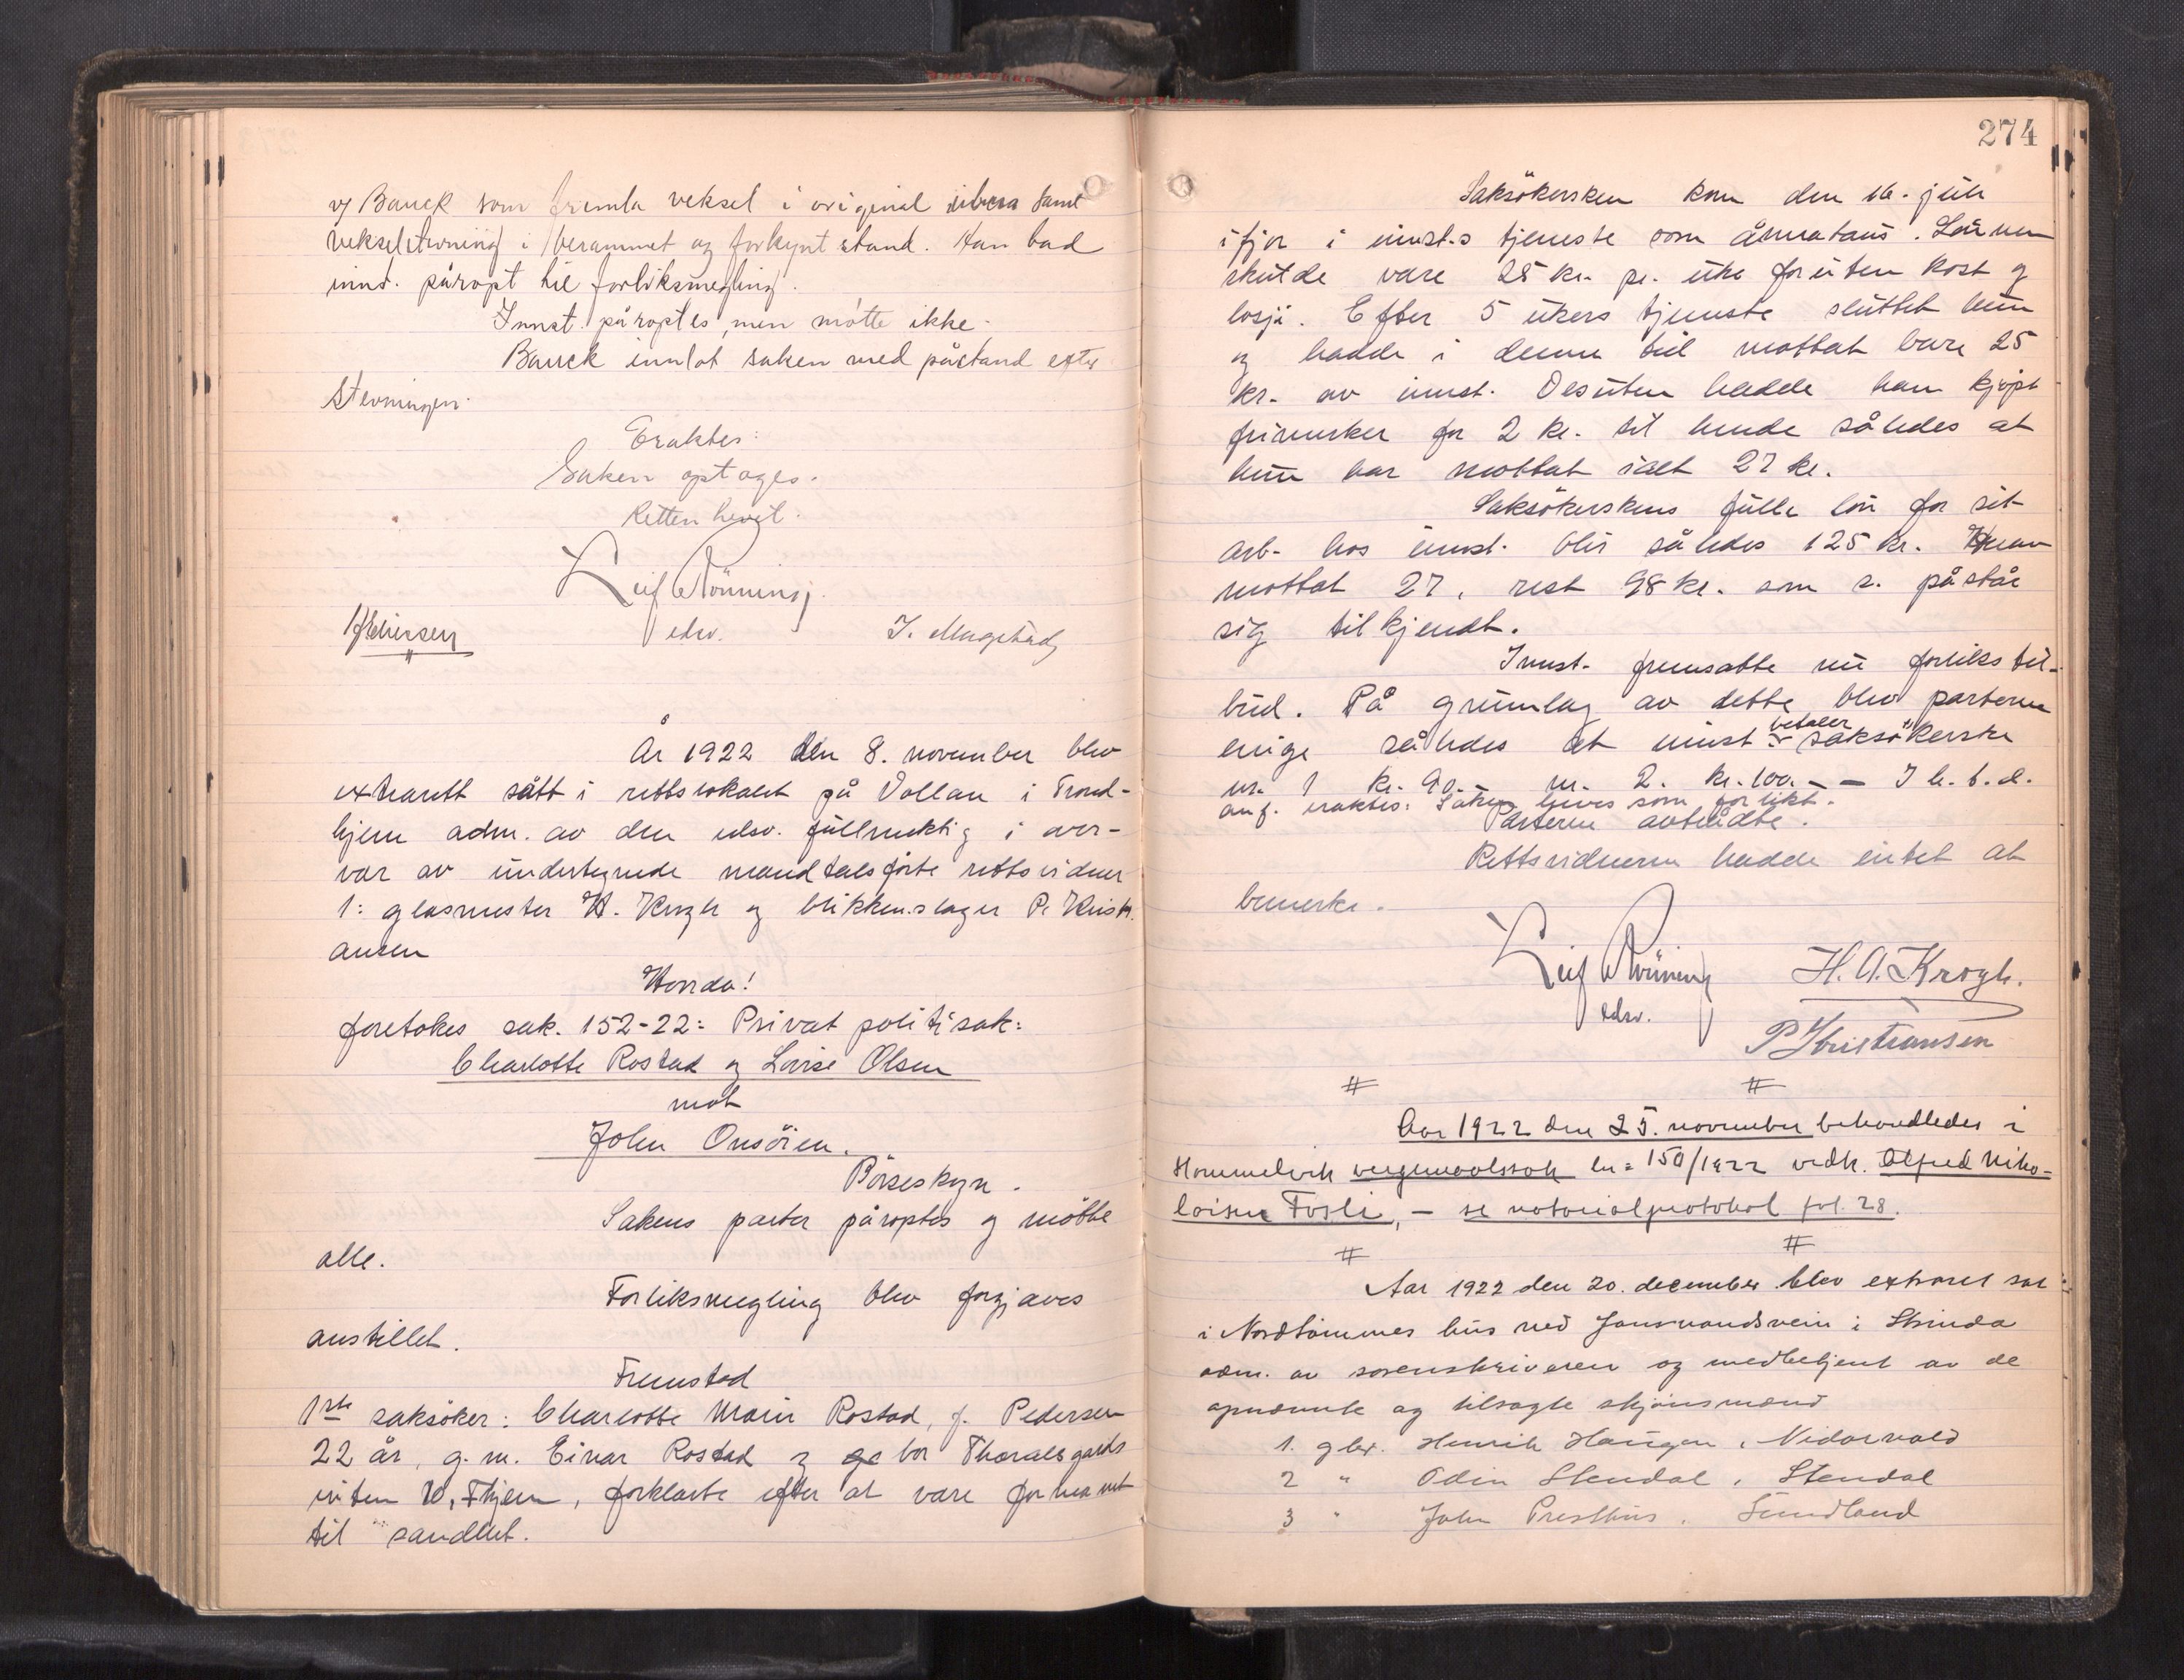 v/ Banck som fremla veksel i original samt
vekselstevning i berammet og forkynt stand. Han bad
innst. påropt til forliksmegling.
Innst. påroptes, men møtte ikke.
Banck innlot saken med påstand efter
stevningen.
Eraktes:
Saken optages.
Retten hevet.
Leif Rönning
edsv.
J. Magstad
År 1922 den 8. november blev
extrarett satt i rettslokalet på Vollan i Trond-
hjem adm. av den edsv. fullmektig i over-
vær av undertegnede mandtalsförte rettsvidner
1: glasmester H. Krogh og blikkenslager P. Kristi-
ansen
Hvorda!
foretokes sak. 152-22: Privat politisak:
Charlotte Rostad og Lovise Olsen
mot
John Onsöien.
Börseskogn.
Sakens parter påroptes og mötte
alle.
Forliksmegling blev forgjæves
anstillet.
Fremstod
1ste saksöker: Charlotte Marie Rostad, f. Pedersen
22 år, g. m. Einar Rostad og bor Thoralsgårds
veiten 10, Thjem, forklarte efter at være formanet
til sandhet.
274
Saksökersken kom den 16. juli
ifjor i innst.s tjeneste som ånnataus. Lönnen
skulde være 25 kr. pr. uke foruten kost og
losji. Efter 5 ukers tjeneste sluttet hun
og hadde i denne tid mottat bare 25
kr. av innst. Desuten hadde han kjöpt
frimerker for 2 kr. til hende således at
hun har mottat ialt 27 kr.
Saksökerskens fulle lön for sit
arb. hos innst. blir således 125 kr. Herav
mottat 27, rest 98 kr. som s. påstår
sig tilkjendt.
Innst. fremsatte nu forlikstil-
bud. På grunnlag av dette blev parterne
enige således at innst. betaler saksökerske
nr. 1 kr. 90.- nr. 2. kr. 100.- - I h. t. d.
anf. eraktes: Saken heves som forlikt.
Parterne avtrådte.
Rettsvidnerne hadde intet at
bemerke.
Leif Rönning
edsv.
H. A. Krogh.
P Kristiansen
# #
Aar 1922 den 25. november behandledes i
Hommelvik vergemaalssak lnr 150/1922 vedk. Alfred Niko-
laisen Fosli, – se notarialprotokol fol. 28.
# #
Aar 1922 den 20. december blev extraret sat
i Nordtømmes hus ved Jonsvandsvein i Strinda
adm. av sorenskriveren og medbetjent av de
opnævnte og tilsagte skjönsmænd
1. gbr. Henrik Haugen, Nidarvold
2 " Odin Stendal, Stendal
3 " John Presthus, Sundland